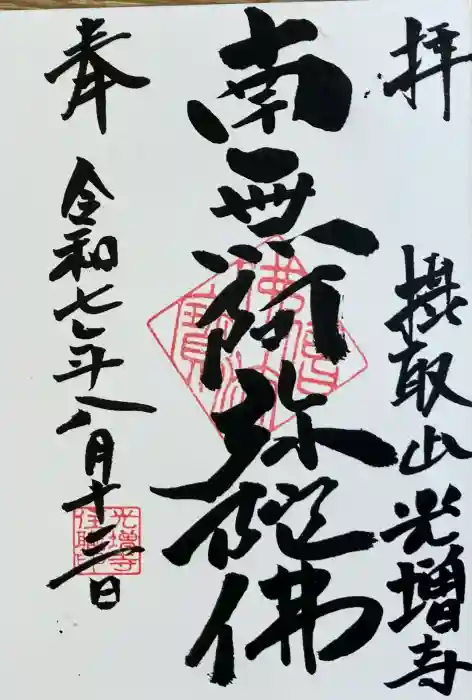 奉拝
摂取山光増寺
南無阿弥陀佛
令和七年八月十三日
光増寺